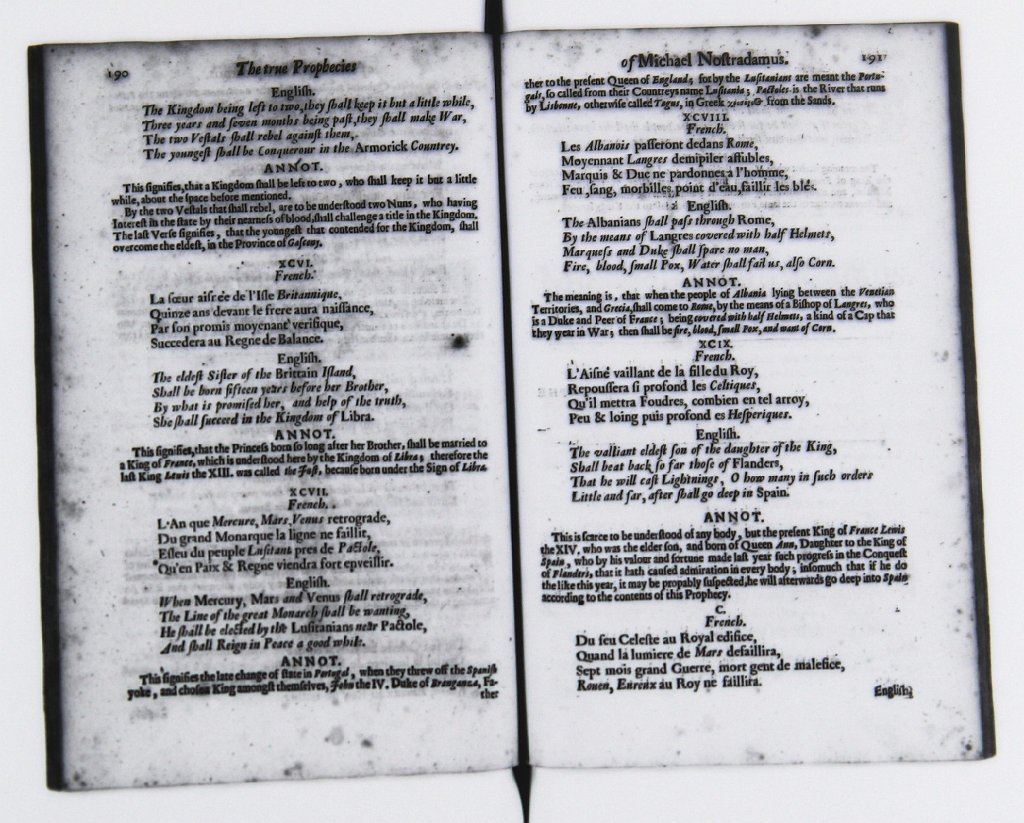 190 The true Prophecies
Engliſh.
The Kingdom being left to two, they ſhall keep it but a little while,
Three years and ſeven months being paſt, they ſhall make War,
The two Veſtals ſhall rebel againſt them,
The youngeſt ſhall be Conquerour in the Armorick Countrey.
ANNOT.
This ſignifies, that a Kingdom ſhall be left to two, who ſhall keep it but a little
while, about the ſpace before mentioned.
By the two Veſtals that ſhall rebel, are to be underſtood two Nuns, who having
Intereſt in the ſtate by their nearneſs of blood, ſhall challenge a title in the Kingdom.
The laſt Verſe ſignifies, that the youngeſt that contended for the Kingdom, ſhall
overcome the eldeſt, in the Province of Gaſcony.
XCVI.
French.
La ſœur aiſnée de l'Iſle Britannique,
Quinze ans devant le frere aura naiſſance,
Par ſon promis moyenant verifique,
Succedera au Regne de Balance.
Engliſh.
The eldeſt Siſter of the Brittain Iſland,
Shall be born fifteen years before her Brother,
By what is promiſed her, and help of the truth,
She ſhall ſucceed in the Kingdom of Libra.
ANNOT.
This ſignifies, that the Princeſs born ſo long after her Brother, ſhall be married to
a King of France, which is underſtood here by the Kingdom of Libra; therefore the
laſt King Lewis the XIII. was called the Juſt, becauſe born under the Sign of Libra.
XCVII.
French.
L'An que Mercure, Mars, Venus retrograde,
Du grand Monarque la ligne ne faillir,
Eſleu du peuple Luſitant pres de Pactole,
Qu'en Paix & Regne viendra fort eþveillir.
Engliſh.
When Mercury, Mars and Venus ſhall retrograde,
The Line of the great Monarch ſhall be wanting,
He ſhall be elected by the Luſitanians near Pactole,
And ſhall Reign in Peace a good while.
ANNOT.
This ſignifies the late change of ſtate in Portugal, when they threw off the Spaniſh
yoke, and choſen King amongſt themſelves, John the IV. Duke of Braganza, Fa-
ther
of Michael Noſtradamus. 191
ther to the preſent Queen of England; for by the Luſitanians are meant the Portu-
gals, ſo called from their Countreys name Luſitania; Pactoles is the River that runs
by Lisbonne, otherwiſe called Tagus, in Greek from the Sands.
XCVIII.
French.
Les Albanois paſſeront dedans Rome,
Moyennant Langres demipiler affubles,
Marquis & Duc ne pardonnes a l'homme,
Feu, ſang, morbilles, point d'eau, faillir les blés.
Engliſh.
The Albanians ſhall paſs through Rome,
By the means of Langres covered with half Helmets,
Marqueſs and Duke ſhall ſpare no man,
Fire, blood, ſmall Pox, Water ſhall fail us, alſo Corn.
ANNOT.
The meaning is, that when the people of Albania lying between the Venetian
Territories, and Grecia, ſhall come to Rome, by the means of a Biſhop of Langres, who
is a Duke and Peer of France; being covered with half Helmets, a kind of a Cap that
they year in War; then ſhall be fire, blood, ſmall Pox, and want of Corn.
XCIX.
French.
L'Aiſné vaillant de la fille du Roy,
Repouſſera ſi profond les Celtiques,
Qu'il mettra Foudres, combien en tel arroy,
Peu & loing puis profond es Heſperiques.
Engliſh.
The valliant eldeſt ſon of the daughter of the King,
Shall beat back ſo far thoſe of Flanders,
That he will caſt Lightnings, O how many in ſuch orders
Little and far, after ſhall go deep in Spain.
ANNOT.
This is ſcarce to be underſtood of any body, but the preſent King of France Lewis
the XIV, who was the elder ſon, and born of Queen Ann, Daughter to the King of
Spain, who by his valour and fortune made laſt year ſuch progreſs in the Conqueſt
of Flanders, that it hath cauſed admiration in every body; inſomuch that if he do
the like this year, it may be propably ſuſpected, he will afterwards go deep into Spain
according to the contents of this Prophecy.
C.
French.
Du feu Celeſte au Royal edifice,
Quand la lumiere de Mars defaillira,
Sept mois grand Guerre, mort gent de malefice,
Rouen, Eureux au Roy ne faillira.
Engliſh.